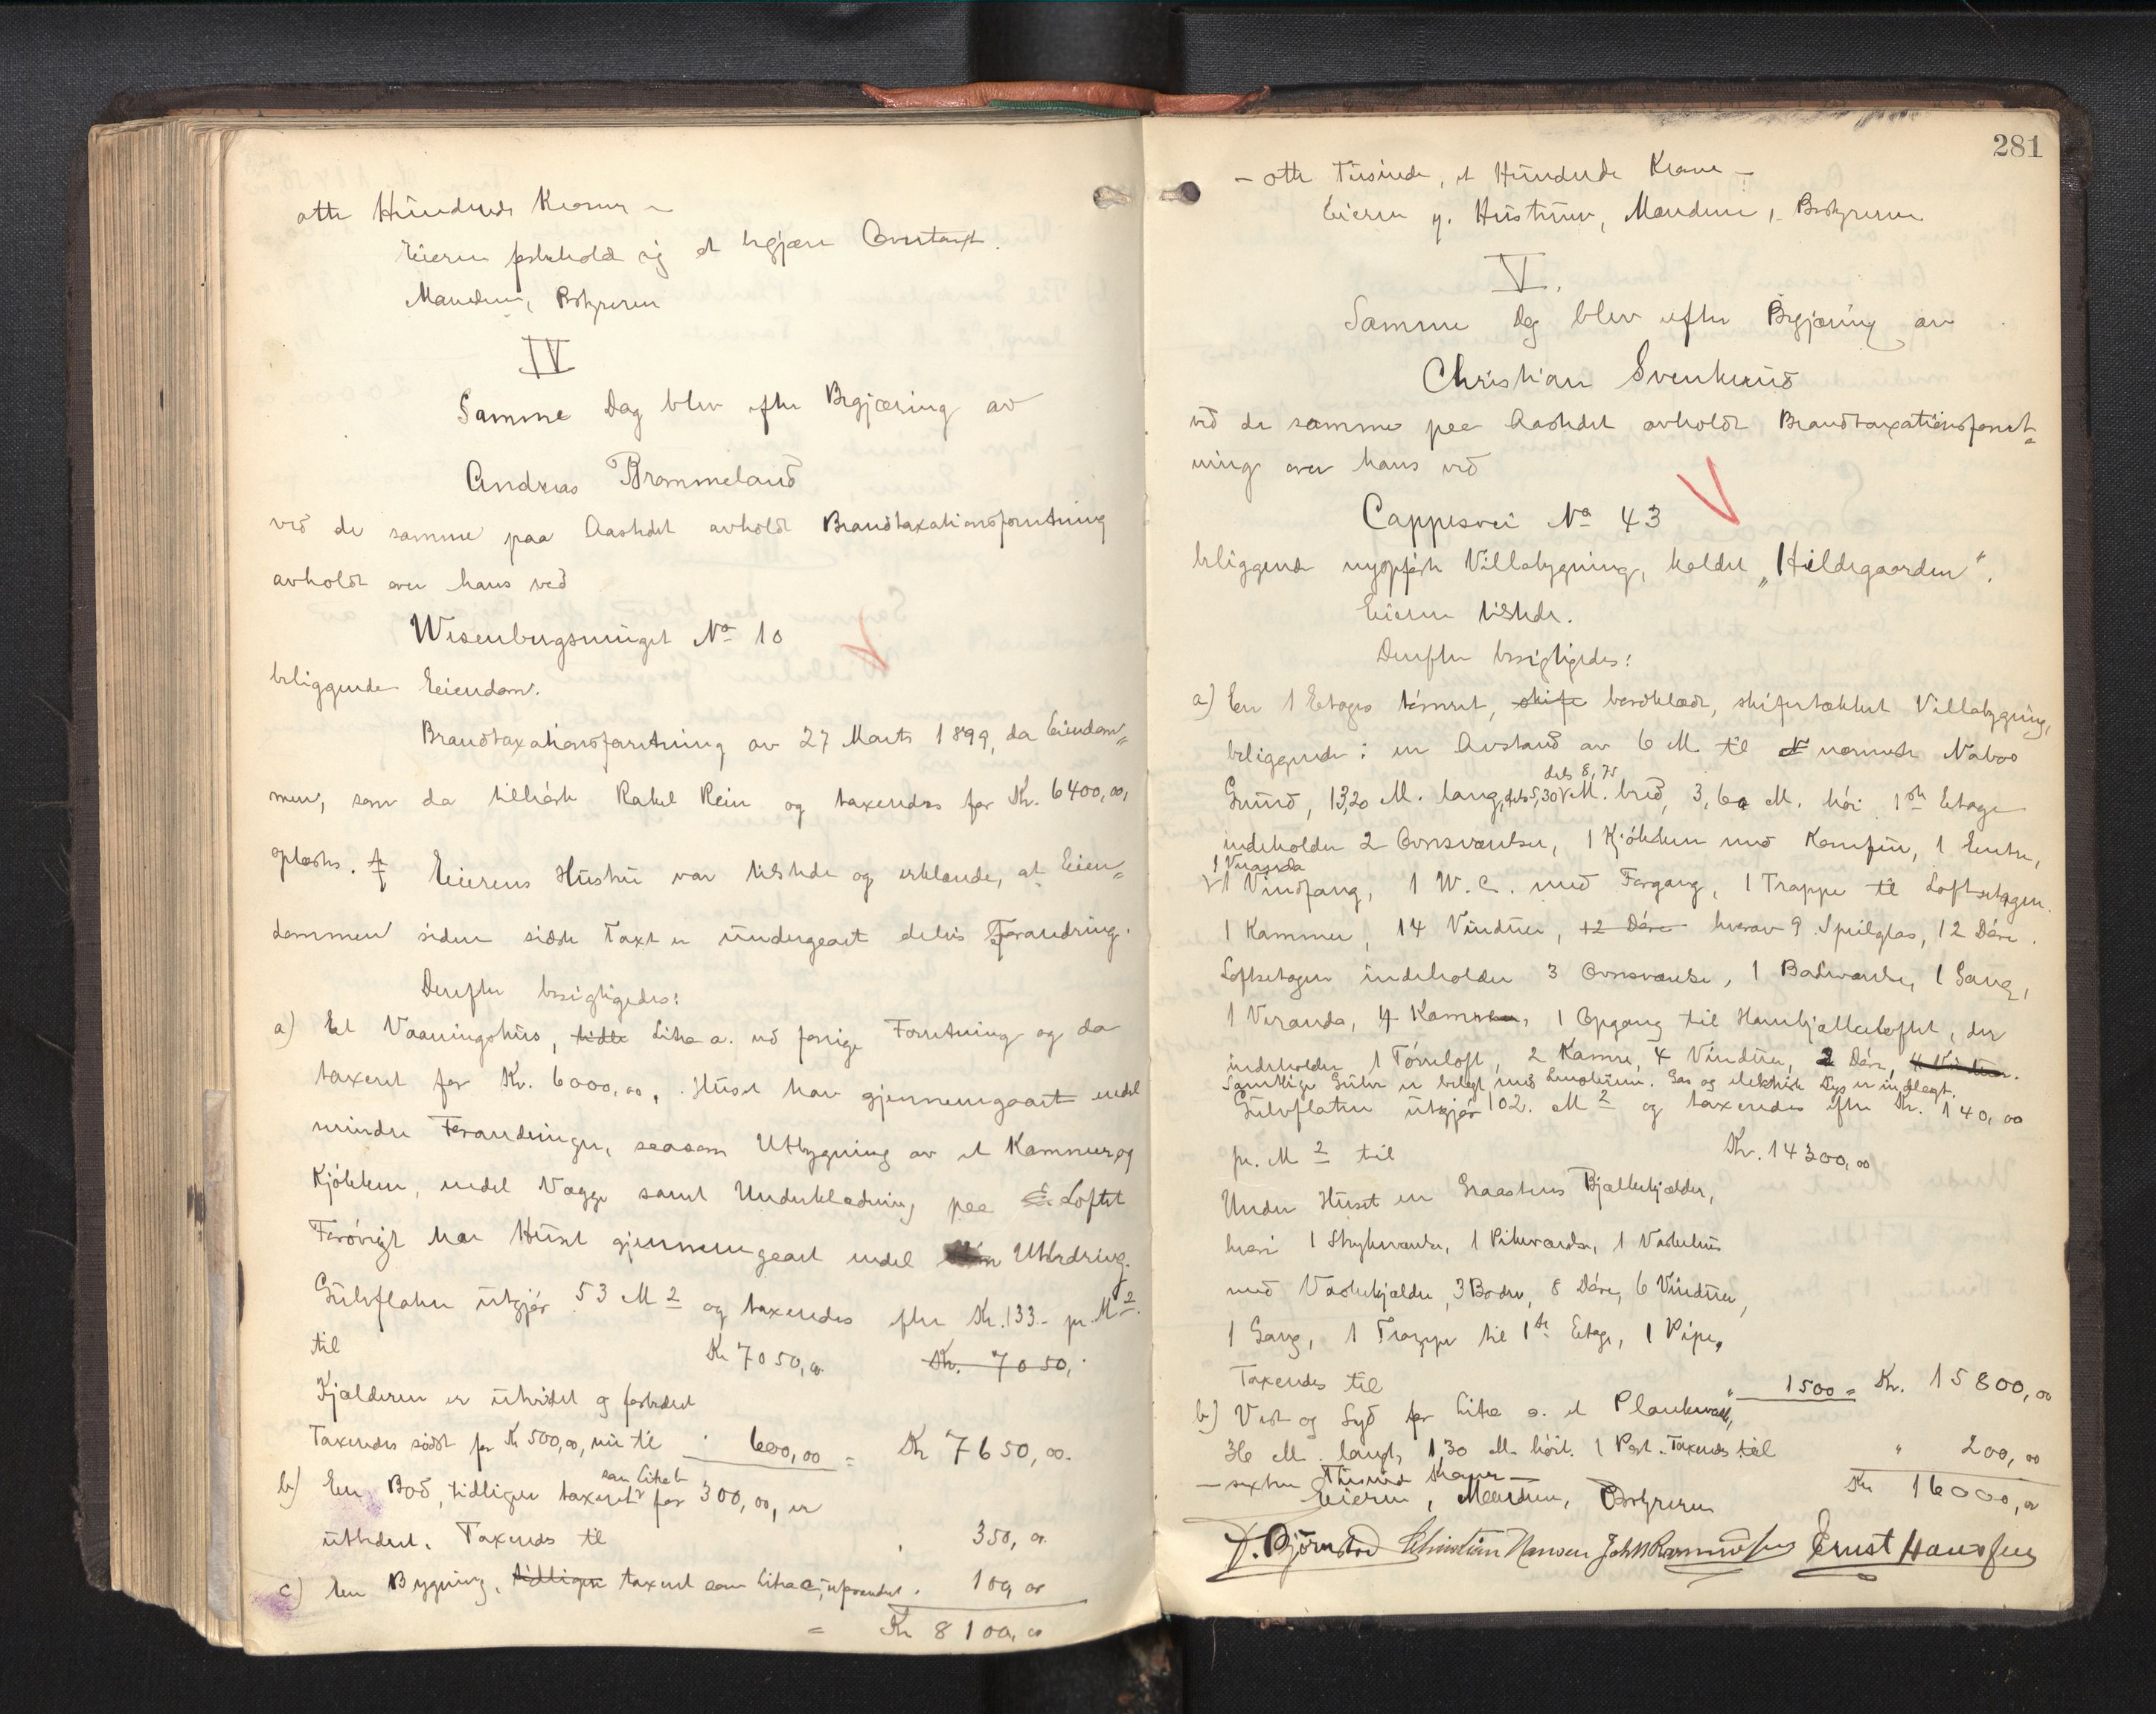 otte Hundrede Kroner –
Eieren forbeholdt sig at begjære Omtaxt.
Mændene, Bestyreren
IV
Samme Dag blev efter Begjæring av
Andreas Brommeland
ved de samme paa Aastedet avholdt Brandtaxationsforretning
avholdt over hans ved
Wesenbergsmuget No 10
beliggende Eiendom.
Brandtaxationsforretning av 27 Marts 1899, da Eiendom„
men, som da tilhørte Rakel Rein og taxeredes for Kr. 6400,00,
oplæstes. Eierens Hustru var tilstede og erklærede, at Eien„
dommen siden sidste Taxt er undergaaet delvis Forandring.
Derefter besigtigedes:
a) Et Vaaningshus, Litra a. ved forrige Forretning og da
taxeret for Kr. 6000,00, Huset har gjennemgaaet endel
mindre Forandringer, saasom Utbygning av et Kammer og
Kjøkken, endel Vægge samt Underklædning paa Loftet
Forøvrigt har Huset gjennemgaaet endel Utbedring.
Gulvflaten utgjør 53 M2 og taxeredes efter Kr. 133.- pr. M2.
til Kr 7050,00. Kr. 7050,
Kjælderen er utvidet og forbedret
Taxeredes sidst for Kr 500,00, nu til 600,00 = Kr 7650,00.
b) En Bod, tidligere taxeret som Litra b for 300,00, er
utbedret. Taxeredes til 350,00
c) En Bygning, tidligere taxeret som Litra c, uforandret. 100,00
= Kr 8100,00
281
– otte Tusinde, et Hundrede Kroner –
Eieren y. Hustruen, Mændene, Bestyreren
V.
Samme Dag blev efter Begjæring av
Christian Svenkerud
ved de samme paa Aastedet avholdt Brandtaxationsforret„
ning over hans ved
Cappesvei No 43
beliggende nyopførte Villabygning, kaldet „Hildegaarden".
Eieren tilstede.
Derefter besigtigedes:
a) En 1 Etages tømret, skife bordklædt, skifertækket Villabygning,
beliggende i en Avstand av 6 M til nærmeste Nabos
dels 8,75
Grund, 13,20 M. lang, dels 5,30 M. bred, 3,60 M. høi 1ste Etage
indeholder 2 Ovnsværelser, 1 Kjøkken med Komfur, 1 Entre,
1 Veranda
1 Vindfang, 1 W.C. med Forgang, 1 Trappe til Loftsetagen.
1 Kammer, 14 Vinduer, 12 Døre hvorav 9 Speilglas, 12 Døre.
Loftsetagen indeholder 3 Ovnsværelser, 1 Badeværelse, 1 Gang,
1 Veranda, 4 Kamre, 1 Opgang til Hanebjælkeloftet, der
indeholder 1 Tørreloft, 2 Kamre, 4 Vinduer, 2 Døre, 4 Vinduer.
Samtlige Gulve er belagt med Linoleum. Gas og elektrisk Lys er indlagt.
Gulvflaten utgjør 102. M2 og taxeredes efter Kr. 140,00
pr. M2 til Kr. 14300,00
Under Huset en Graastens Bjælkekjælder,
hvori 1 Strykeværelse, 1 Pikeværelse, 1 Vaskehus
med Vaskekjedel, 3 Boder, 8 Døre, 6 Vinduer,
1 Gang, 1 Trappe til 1ste Etage, 1 Pipe,
Taxeredes til „ 1500 = Kr. 15800,00
b) Vest og Syd for Litra a. et Plankeværk,
36 M. langt, 1,30 M. høit. 1 Port. Taxeredes til „ 200,00
– sexten Tusinde Kroner – Kr 16000,00
Eieren, Mændene, Bestyreren
Christian Hansen Ernst Hanssen